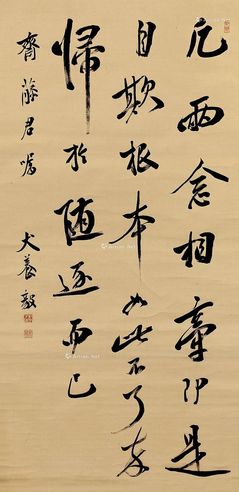 凡兩念相牽即是
自欺根本如此不了卒
歸於随逐而已
齋藤君嘱
犬養毅